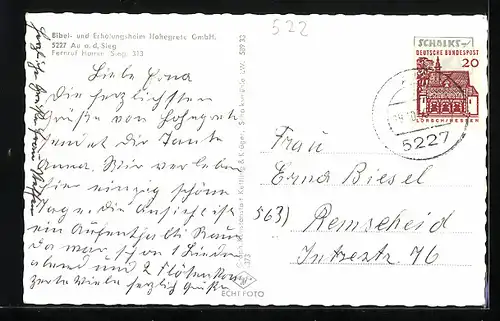 522
Bibel- und Erholungsheim Hohegrete GmbH.
5227 Au a. d. Sieg
Fernruf Hamm Sieg 313
SCHALKS-
DEUTSCHE BUNDESPOST
20
LORSCH/HESSEN
5227
Liebe Erna
Die herzlichsten
Grüße von Hohegrete
sendet dir Tante
Anna. Wir verleben
hier einzig schöne
Tage. Die Ansicht ist
ein Aufenthalts Raum
Da war schon 1 Lieder
abend und 2 Flötenkon
zerte
herzlich Grüßen
Herzliche Grüße
Frau
Erna Biesel
563) Remscheid
Intzestr. 76
ECHT FOTO